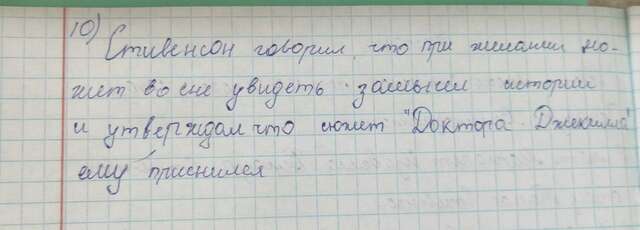 10) Стивенсон говорил, что при желании мо-
жет во сне увидеть замысел истории
и утверждал что сюжет "Доктора Джекилла"
ему приснился